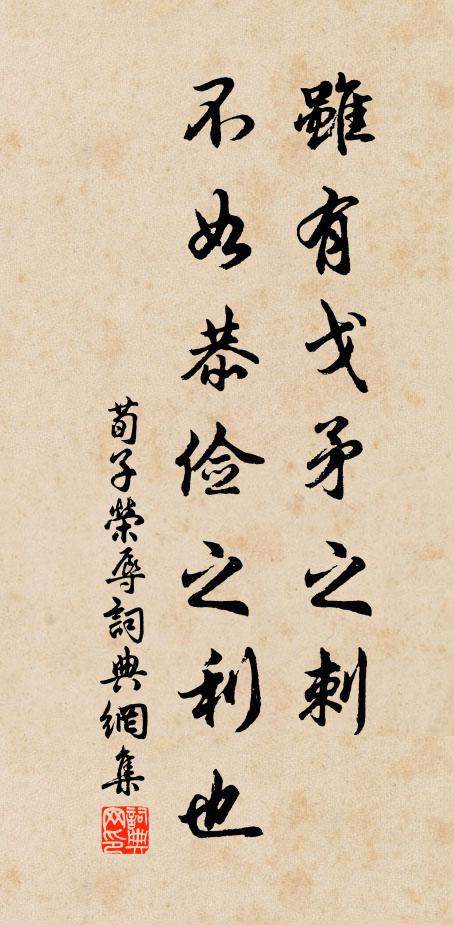 雖有戈矛之刺
不如恭儉之利也
荀子榮辱詞典網集
詞典網印